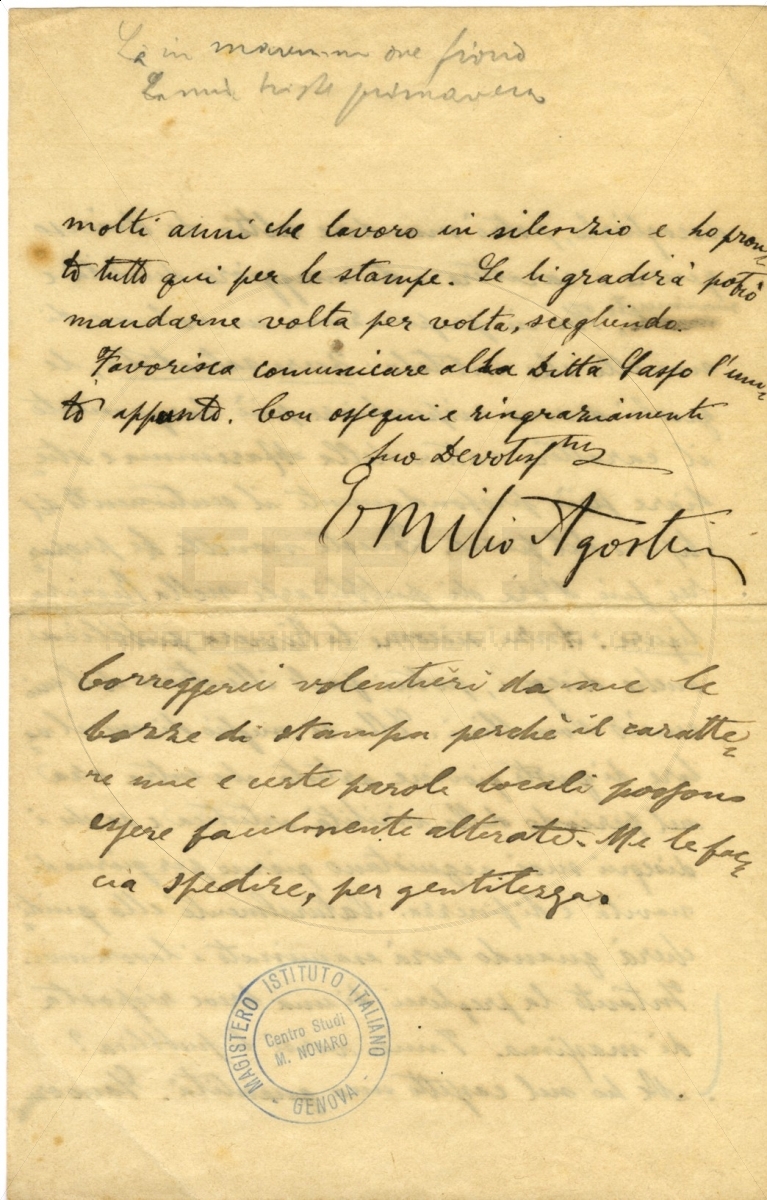 Là in maremma ove fiorìo
La mia triste primavera
molti anni che lavoro in silenzio e ho pron=
to tutto qui per le stampe. Se li gradirà potrò
mandarne volta per volta, scegliendo.
Favorisca comunicare alla Ditta l'uni=
to appunto. Con ossequi e ringraziamenti
suo Devotissmo
Emilio Agostini
Correggerei volentieri da me le
bozze di stampa perchè il caratte=
re mio e certe parole locali possono
essere facilmente alterate. Me le fac=
cia spedire, per gentilezza.
MAGISTERO ISTITUTO ITALIANO
Centro Studi
M. NOVARO
GENOVA